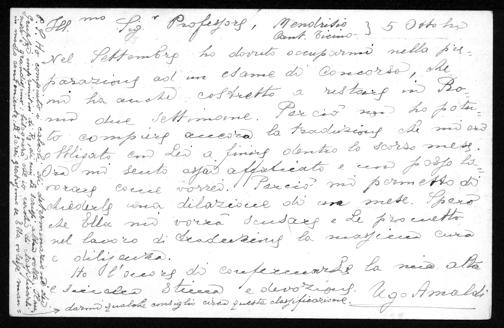 Ill.mo Sig. Professore, Mendrisio } 5 Ottobre
Cant. Ticino
Nel Settembre ho dovuto occuparmi nella pre-
parazione ad un esame di Concorso, che
mi ha anche costretto a restare in Ro-
ma due settimane. Perciò non ho potu-
to compiere ancora la traduzione che mi ero
obbligato con Lei a finire dentro lo scorso mese.
Ora mi sento assai affaticato e non posso la-
vorare come vorrei. Perciò mi permetto di
chiederle una dilazione di un mese. Spero
che Ella mi vorrà scusare e Le prometto
nel lavoro di traduzione la massima cura
e diligenza.
Ho l'onore di confermarLe la mia alta
e sincera stima e devozione. Ugo Amaldi
P. S. Ho comperato
in modo
darmi qualche consiglio circa questa classificazione.